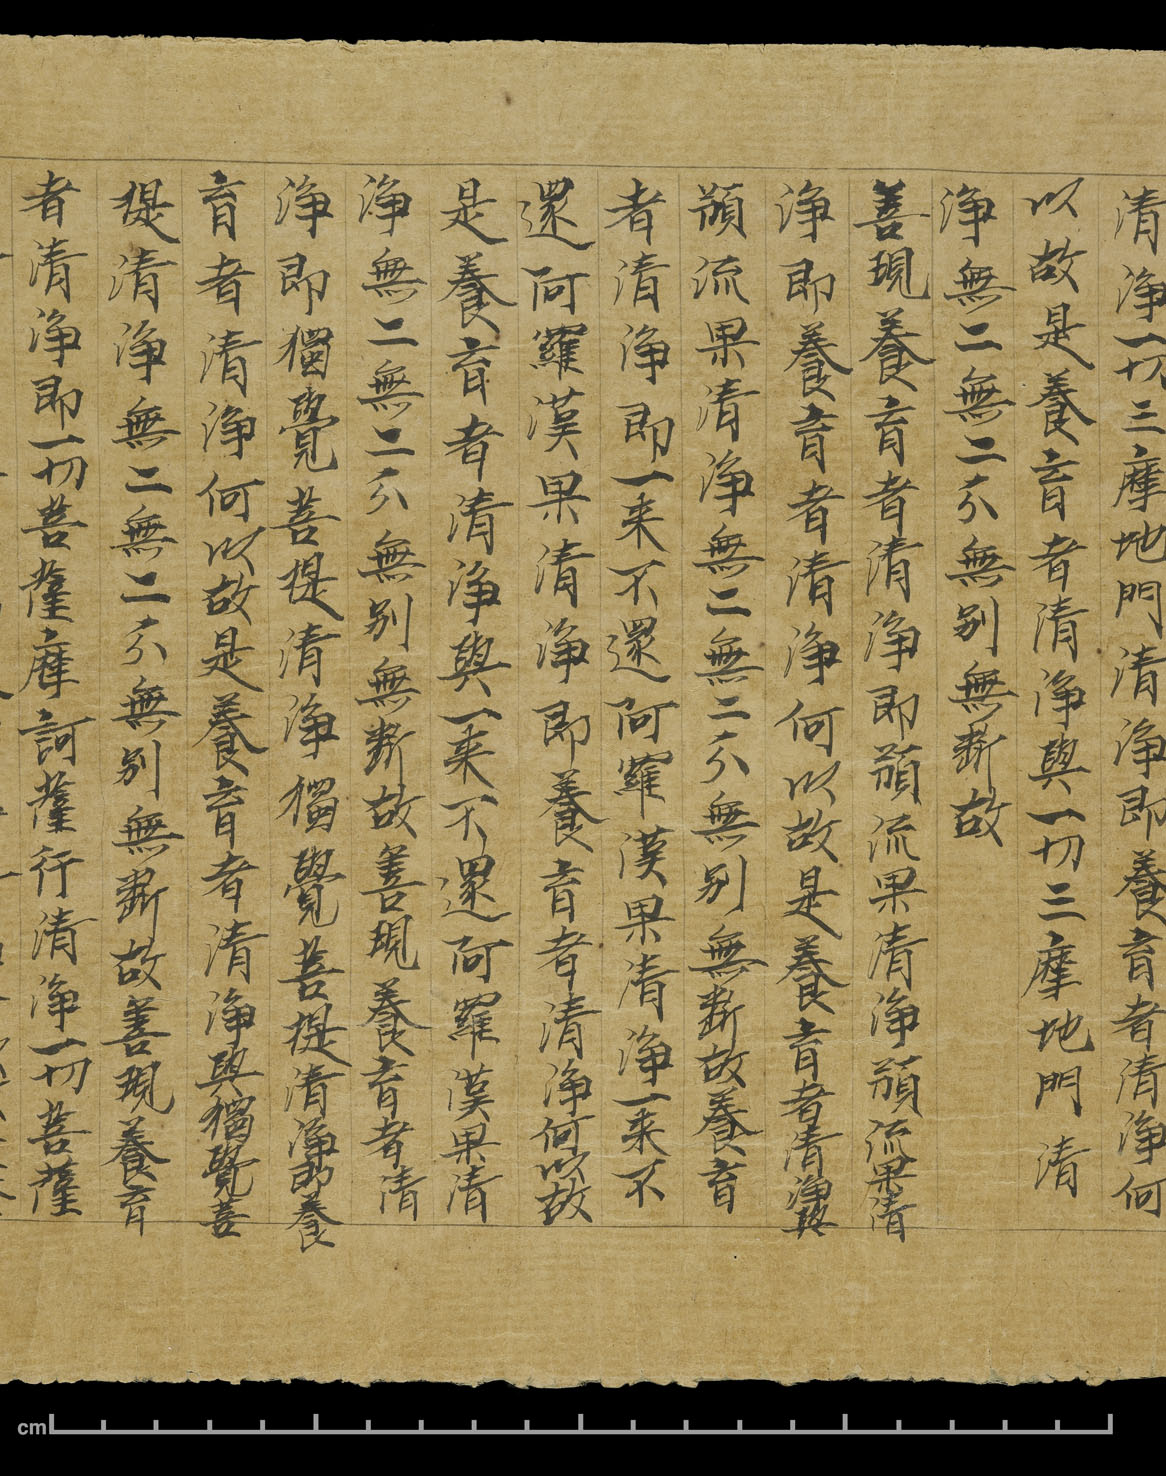 清淨一切三摩地門清淨即養育者清淨何
以故是養育者清淨與一切三摩地門清
淨無二無二分無別無斷故
善現養育者清淨即預流果清淨預流果清
淨即養育者清淨何以故是養育者清淨與
預流果清淨無二無二分無別無斷故養育
者清淨即一来不還阿羅漢果清淨一来不
還阿羅漢果清淨即養育者清淨何以故
是養育者清淨與一来不還阿羅漢果清
淨無二無二分無別無斷故善現養育者清
淨即獨覺菩提清淨獨覺菩提清淨即養
育者清淨何以故是養育者清淨與獨覺菩
提清淨無二無二分無別無斷故善現養育
者清淨即一切菩薩摩訶薩行清淨一切菩薩